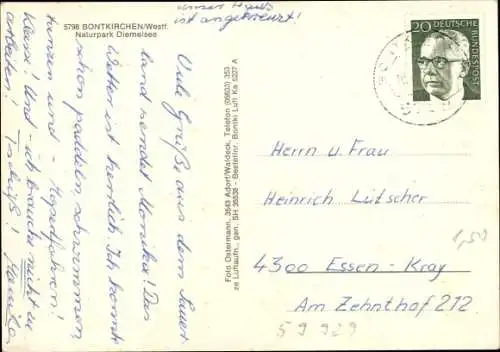 unser Haus
ist angekreuzt!
5798 BONTKIRCHEN/Westf.
Naturpark Diemelsee
Viele Grüße, aus dem Sauer
land sendet Monika! Das
Wetter ist herrlich. Ich konnte
schon paddeln schwimmen
tanzen und - Mopedfahren!
Klasse! Und - ich brauche nicht zu
arbeiten! Tschüß! Monika
Foto Ostermann, 3543 Adorf/Waldeck, Telefon (05633) 353
ze Luftaufn., gen. SH 35538 - Bestellnr. Bontki Luft Ka 5227 A
20 DEUTSCHE
BUNDESPOST
Herrn u. Frau
Heinrich Lütscher
4300 Essen-Kray
Am Zehnthof 212
1,50
59929